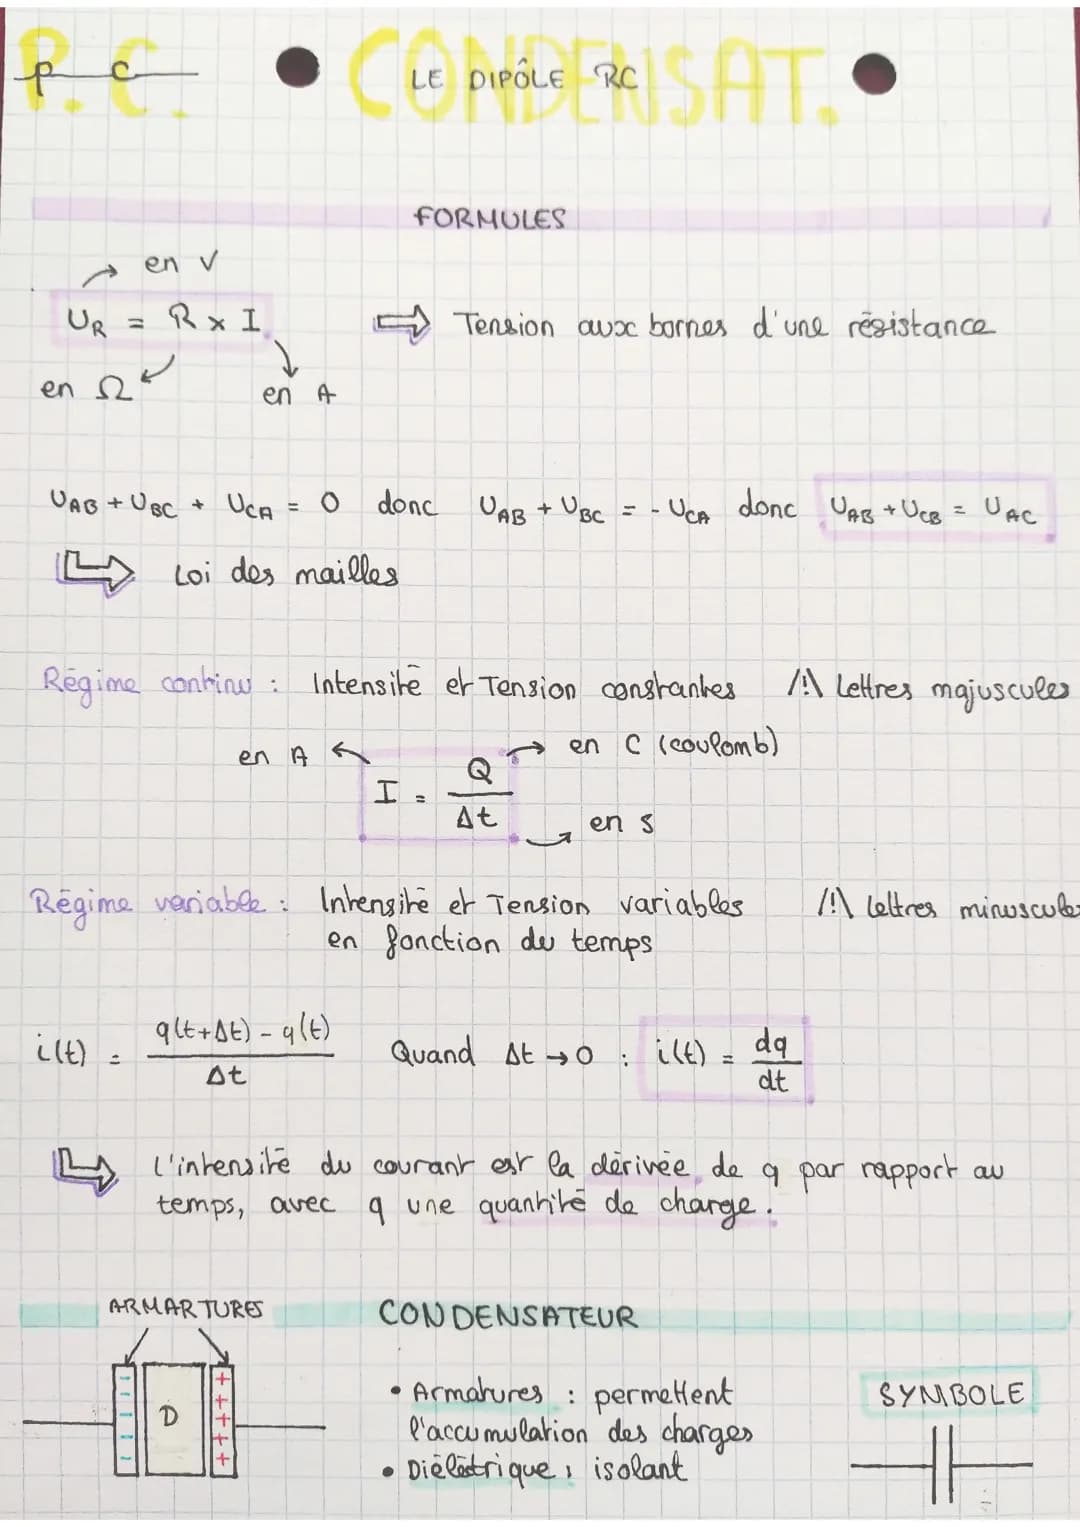 P.C. CONDENSAT.
p c LE DIPÔLE RC
FORMULES
en V
UR = R x I ⇒ Tension aux bornes d'une résistance
en Ω en A
UAB + UBC + UCA = 0 donc UAB + UBC = - UCA donc UAB + UCB = UAC
Loi des mailles
Régime continu : Intensité et Tension constantes /!\ Lettres majuscules
en A I = Q/Δt en C (coulomb)
en s
Régime variable : Intensité et Tension variables /!\ lettres minuscules
en fonction du temps
i(t) = q(t+Δt) - q(t)/Δt Quand Δt → 0 : i(t) = dq/dt
L'intensité du courant est la dérivée de q par rapport au
temps, avec q une quantité de charge.
ARMARTURES CONDENSATEUR
- - - - - D + + + + +
• Armatures : permettent
l'accumulation des charges
• Diélétrique : isolant
SYMBOLE